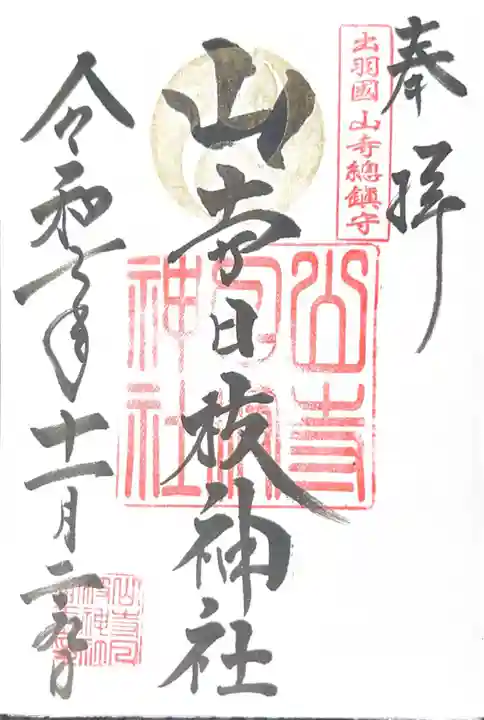 奉拝
出羽國 山寺總鎮守
山寺日枝神社
山寺日枝神社
令和六年十一月二十九日